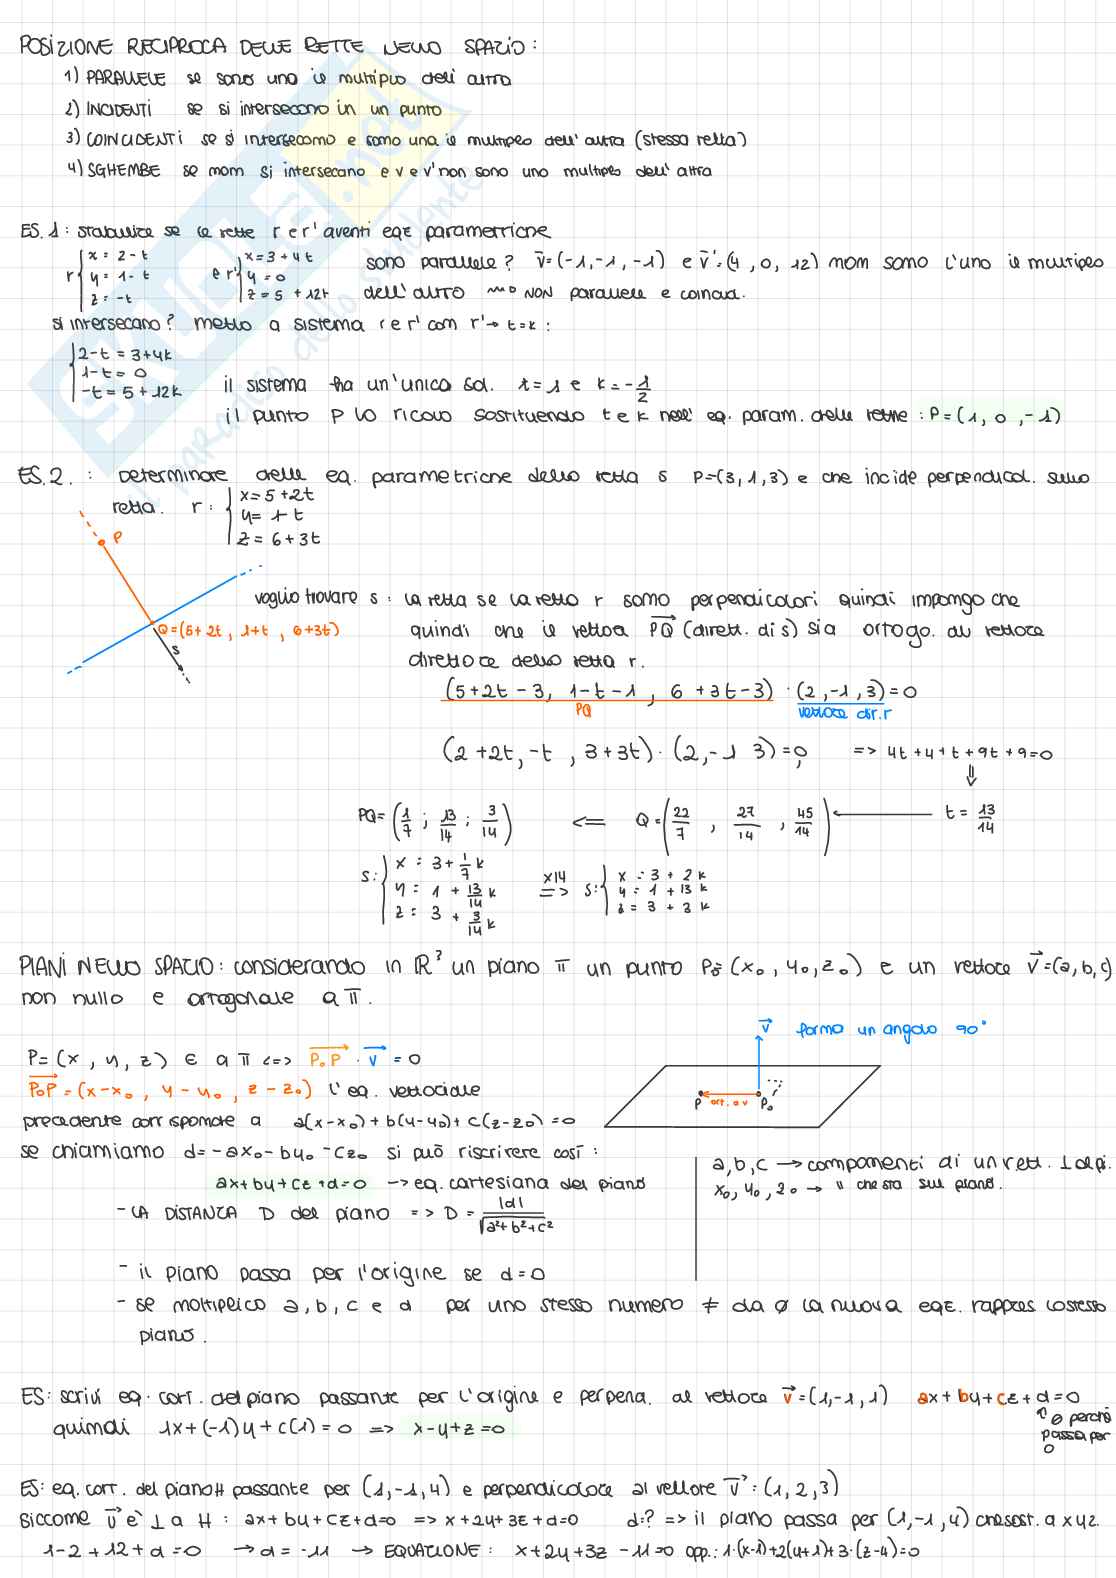 POSIZIONE RECIPROCA DELLE RETTE NELLO SPAZIO:
1) PARALLELE se sono uno il multiplo dell'altro
2) INCIDENTI se si intersecano in un punto
3) COINCIDENTI se si intersecano e sono una il multiplo dell'altra (stessa retta)
4) SGHEMBE se non si intersecano e v e v' non sono uno multiplo dell'altra
ES. 1: stabilire se le rette r e r' aventi eq.e parametriche
r { x = 2-t
y = 1-t
z = -t
e r' { x = 3+4t
y = 0
z = 5 + 12t
sono parallele? v⃗=(-1,-1,-1) e v⃗'=(4, 0, 12) non sono l'uno il multiplo
dell'altro ⟿ NON parallele e coincid.
si intersecano? metto a sistema r e r' con r' → t=k:
{ 2-t = 3+4k
1-t = 0
-t = 5 + 12k
il sistema ha un'unica sol. t=1 e k=-1/2
il punto P lo ricavo sostituendo t e k nell'eq. param. delle rette: P=(1, 0, -1)
ES. 2. : Determinare delle eq. parametriche della retta s P=(3,1,3) e che incide perpendicol. sulla
retta. r: { x=5+2t
y= 1 t
z= 6+3t
P
Q=(5+2t, 1+t, 6+3t)
s
voglio trovare s: la retta se la retta r sono perpendicolari quindi impongo che
quindi che il vettore PQ⃗ (dirett. di s) sia ortogo. al vettore
direttore della retta r.
(5+2t-3, 1-t-1, 6+3t-3) · (2,-1,3)=0
PQ
vettore dir. r
(2+2t, -t, 3+3t) · (2,-1 3)=0, => 4t+4+t+9t+9=0
⇓
PQ=(1/7; 13/14; 3/14) <= Q=(22/7, 27/14, 45/14) ← t = 13/14
s: { x = 3+1/7 k
y = 1 + 13/14 k
z = 3 + 3/14 k
x14
=>
s: { x = 3 + 2k
y = 1 + 13k
z = 3 + 3k
PIANI NELLO SPAZIO: considerando in ℝ³ un piano π un punto P₀=(x₀, y₀, z₀) e un vettore v⃗=(a, b, c)
non nullo e ortogonale a π.
v⃗ forma un angolo 90°
P=(x, y, z) ∈ a π <=> P₀P⃗ · v⃗ = 0
P₀P⃗ = (x-x₀, y-y₀, z-z₀) l'eq. vettoriale
P ort. a v P₀
precedente corrisponde a a(x-x₀)+b(y-y₀)+c(z-z₀)=0
se chiamiamo d=-ax₀-by₀-cz₀ si può riscrivere così:
ax+by+cz+d=0 → eq. cartesiana del piano
a, b, c → componenti di un vett. ⊥ al pi.
x₀, y₀, z₀ → " che sta sul piano.
- LA DISTANZA D del piano => D = |d| / √a²+b²+c²
- il piano passa per l'origine se d=0
- se moltiplico a, b, c e d per uno stesso numero ≠ da 0 la nuova eq.e. rappres lo stesso
piano.
ES: scrivi eq. cart. del piano passante per l'origine e perpend. al vettore v⃗=(1,-1,1) ax+by+cz+d=0
quindi 1x+(-1)y+c(1)=0 => x-y+z=0
↑ 0 perché
passa per
0
ES: eq. cart. del piano H passante per (1,-1,4) e perpendicolare al vettore v⃗: (1, 2, 3)
Siccome v⃗ è ⊥ a H: ax+by+cz+d=0 => x+2y+3z+d=0 d=? => il piano passa per (1,-1,4) che sost. a xyz.
1-2+12+d=0 → d=-11 → EQUAZIONE: x+2y+3z-11=0 opp.: 1·(x-1)+2(y+1)+3·(z-4)=0
SKUOLA.net
il paradiso dello studente